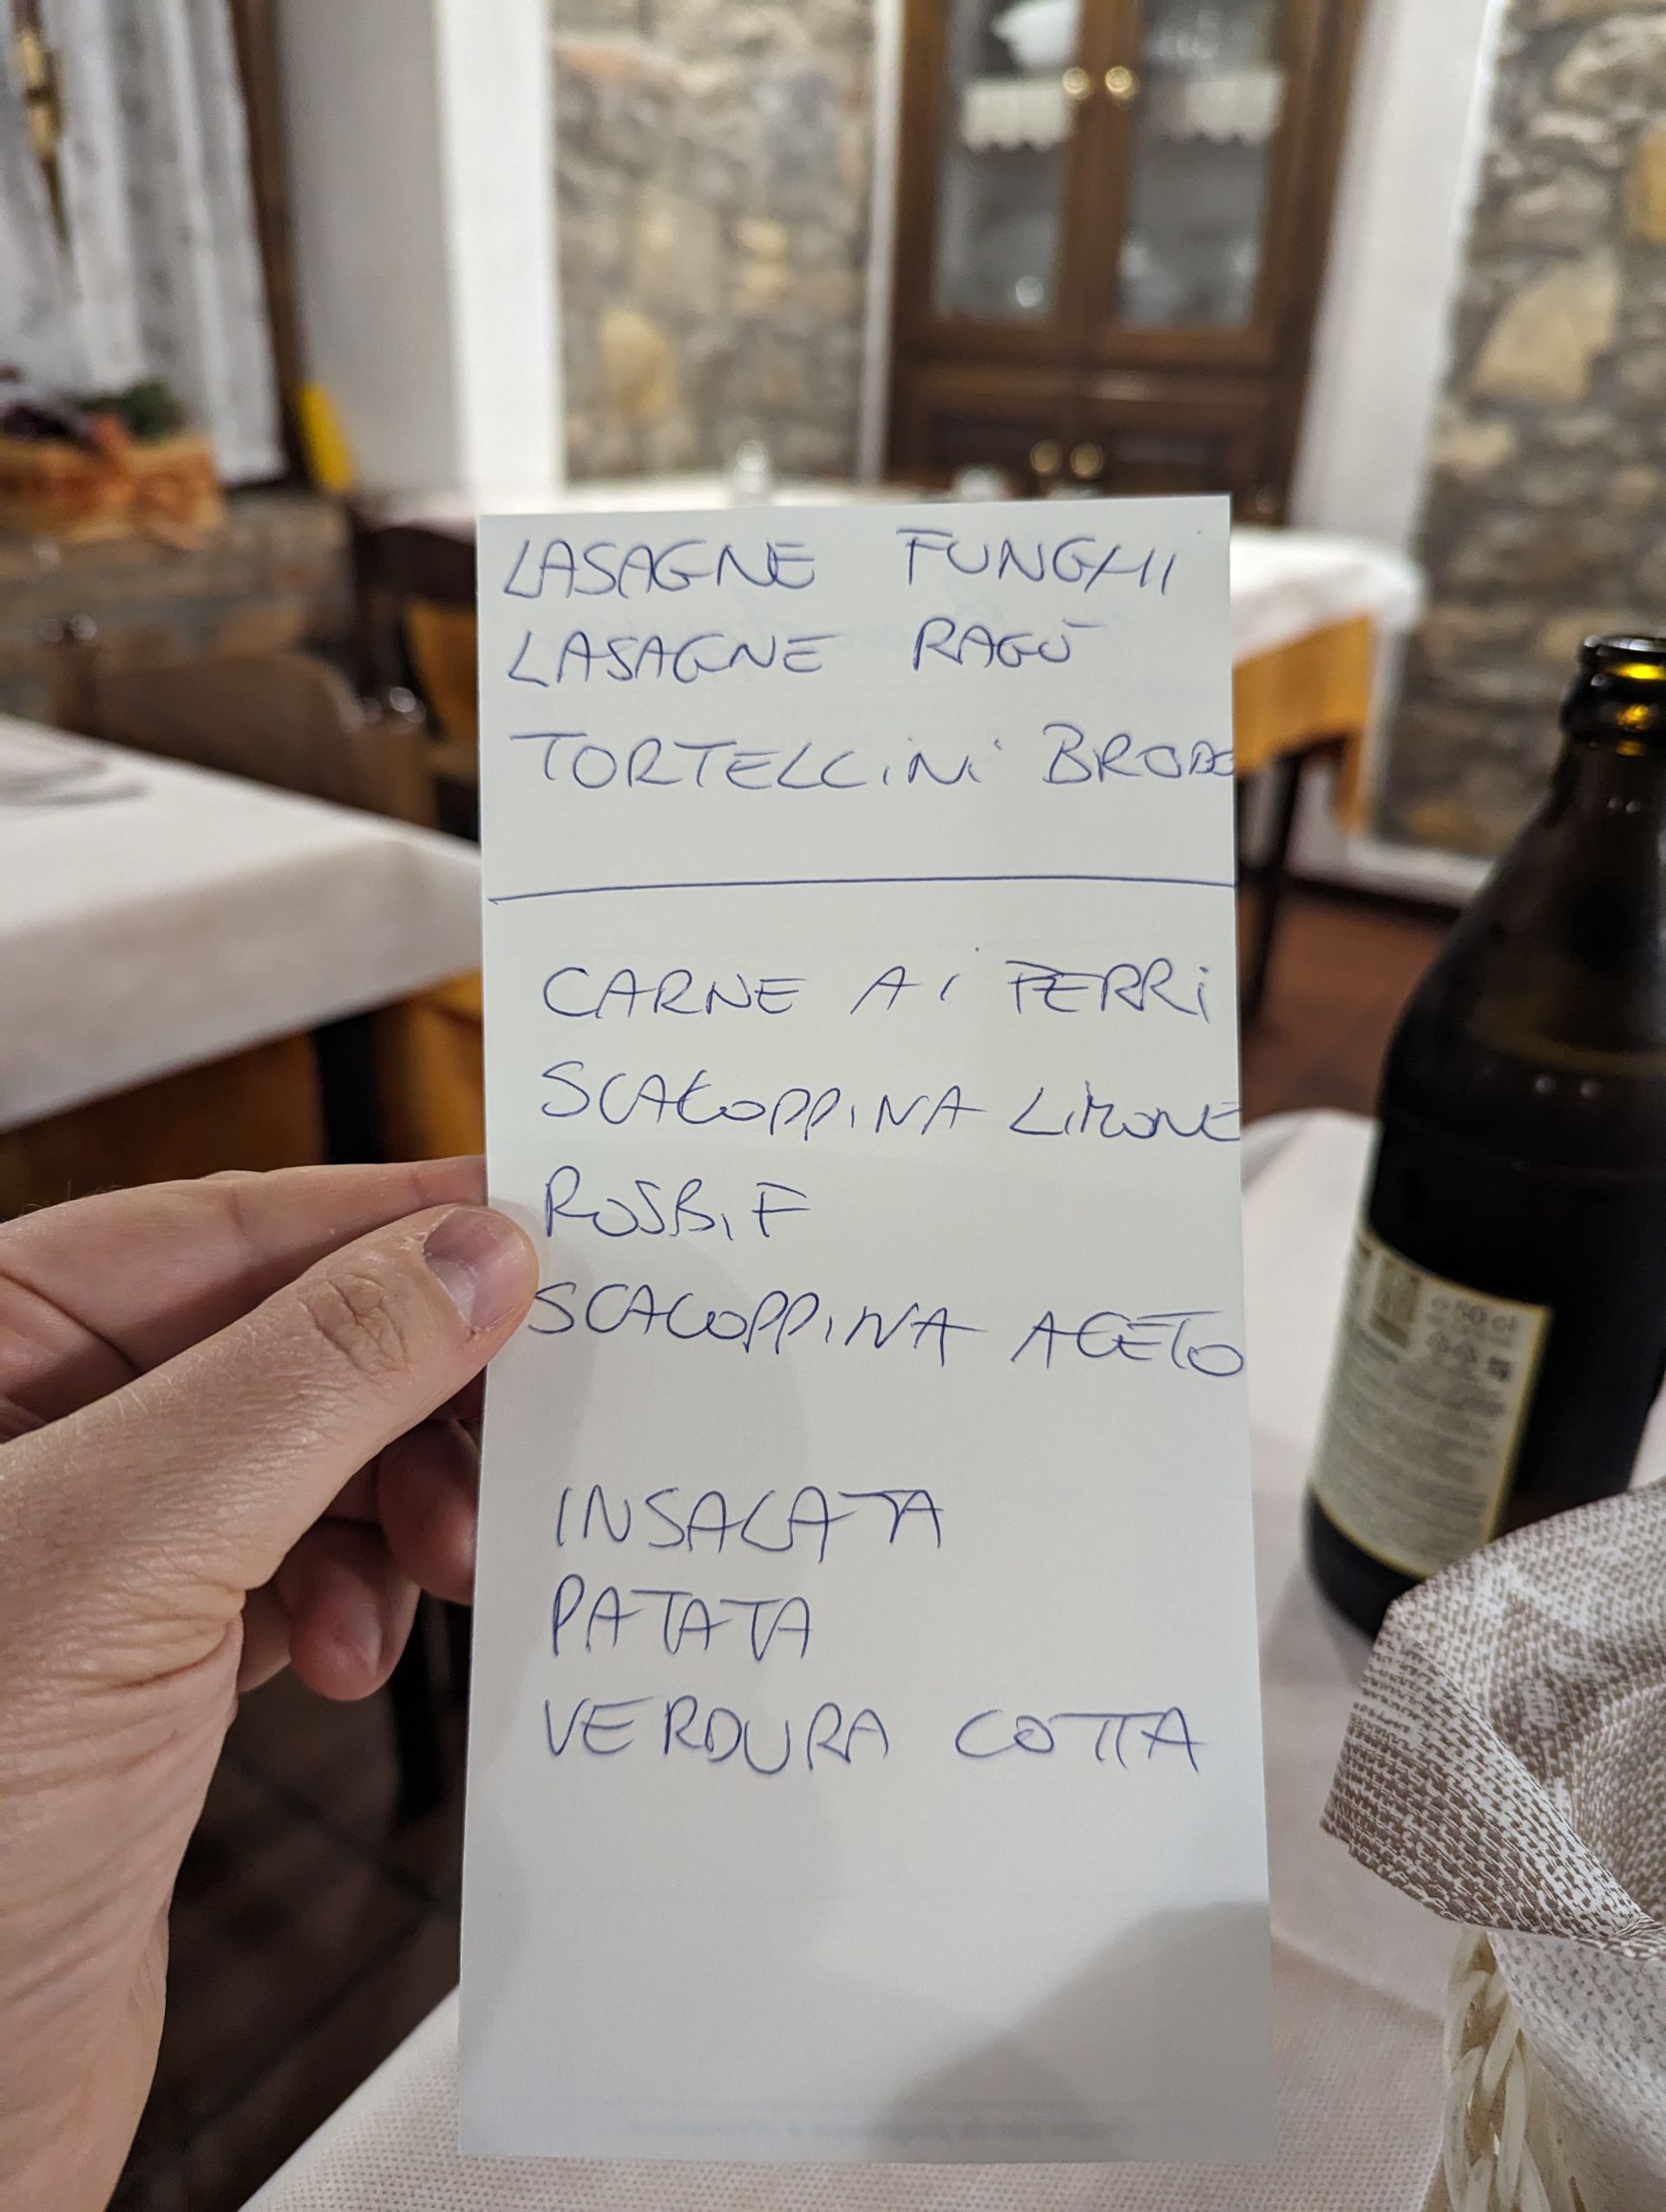 LASAGNE FUNGHI
LASAGNE RAGÙ
TORTELLINI BRODO
CARNE AI FERRI
SCALOPPINA LIMONE
ROSBIF
SCALOPPINA ACETO
INSALATA
PATATA
VERDURA COTTA